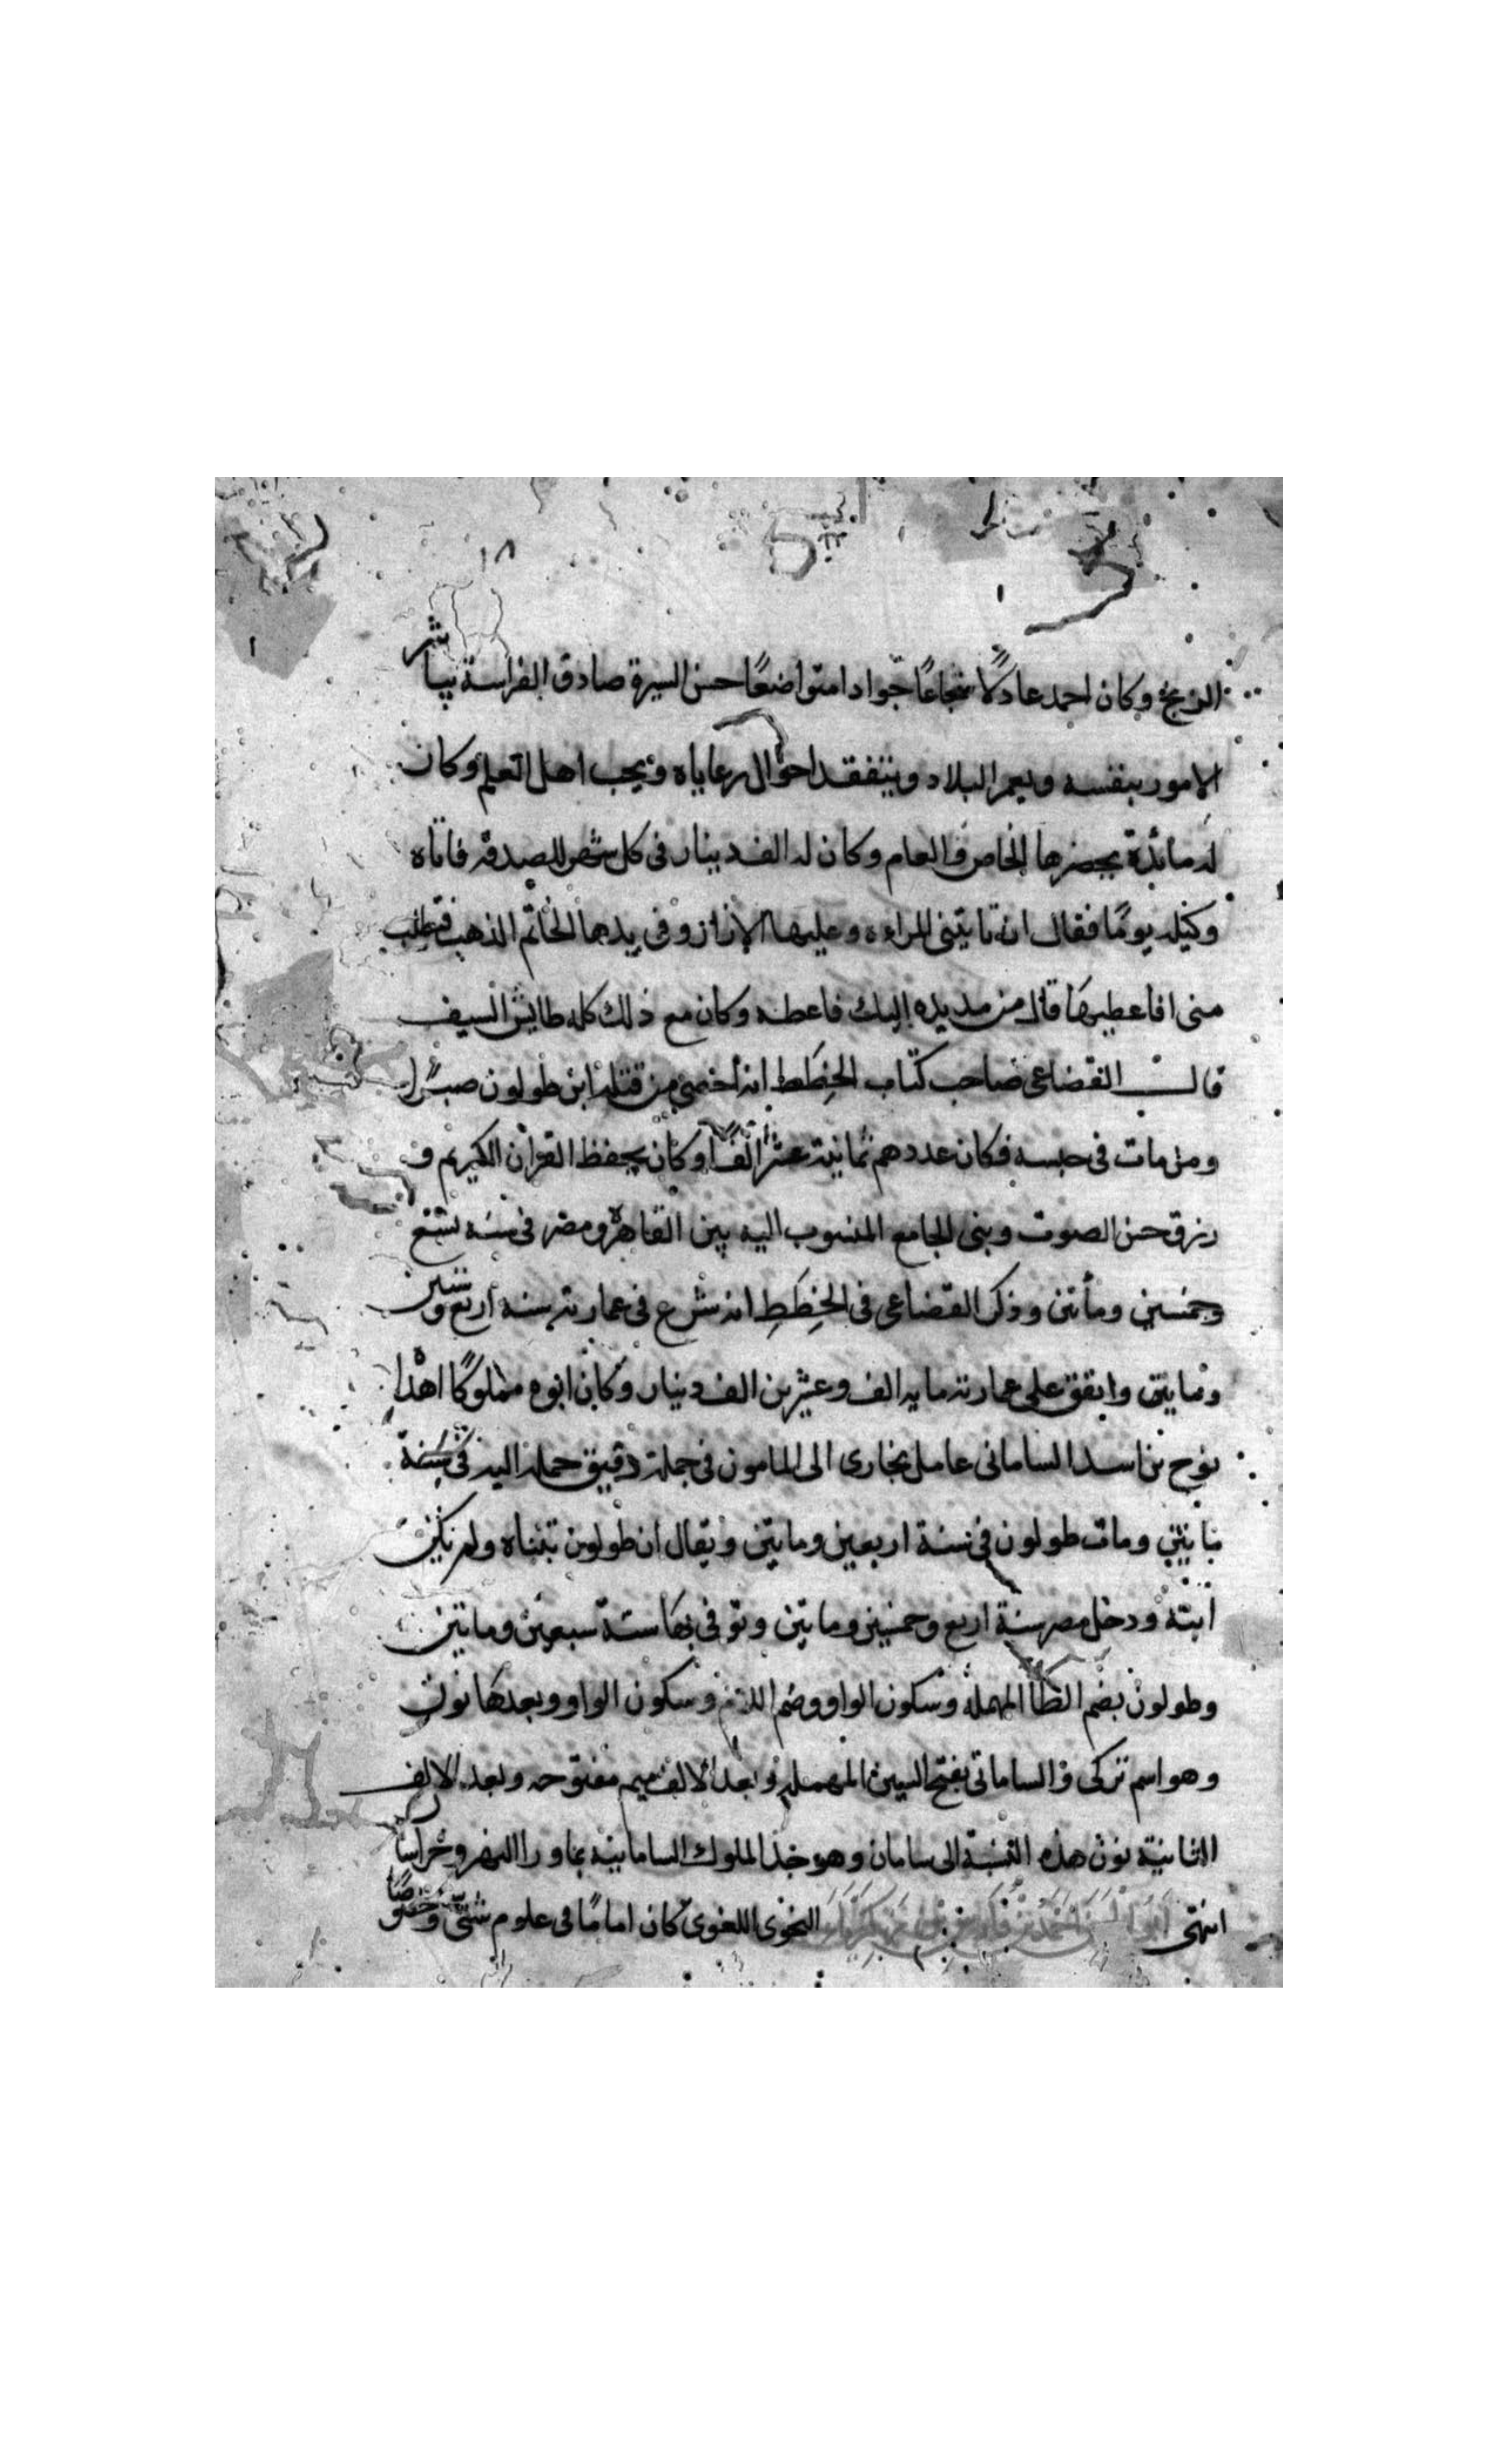 ١٨
الزنج وكان احمد عادلا شجاعًا جوادا متواضعًا حسن السيرة صادق الفراسة يباشر
الامور بنفسه ويعمر البلاد ويتفقد احوال رعاياه ويحب اهل العلم وكان
له مائدة يحضرها الخاص والعام وكان له الف دينار فى كل شهر للصدقة فاتاه
وكيله يومًا فقال انه تاتينى المراءه وعليها الازار وفى يدها الخاتم الذهب فتطلب
منى افاعطيها قال من مد يده اليك فاعطه وكان مع ذلك كله طايش السيف
قال القضاعى صاحب كتاب الخِطَط انه أحصى من قتله ابن طولون صبرًا
ومن مات فى حبسه فكان عددهم ثمانية عشر الفًا وكان يحفظ القران الكريم و
رزق حسن الصوت وبنى الجامع المنسوب اليه بين القاهرة ومصر فى سنه تسع
وخمسين ومأتين وذكر القضاعى فى الخِطَطِ انه شرع فى عمارته سنة اربع وستين
ومايتين وانفق على عمارته مايه الف وعشرين الف دينار وكان ابوه مملوكًا اهدا
نوح بن اسد السامانى عامل بخارى الى المامون فى جملة رقيق حمله اليه فى سنة
مايتين ومات طولون فى سنة اربعين ومايتين ويقال ان طولون تبناه ولم يكن
ابنه ودخل مصر سنة اربع وخمسين ومايتين وتوفى بها سنة سبعين ومايتين
وطولون بضم الطا المهملة وسكون الواو وضم اللام وسكون الواو وبعدها نون
وهو اسم تركى والسامانى بفتح السين المهملة وبعد الالف ميم مفتوحه وبعد الالف
الثانية نون هذه النسبة الى سامان وهو جد الملوك السامانية بماورا النهر وخراسا
انتهى ابو الحسن احمد بن فارس بن زكريا النحوى اللغوى كان امامًا فى علوم شتى وخصوصًا